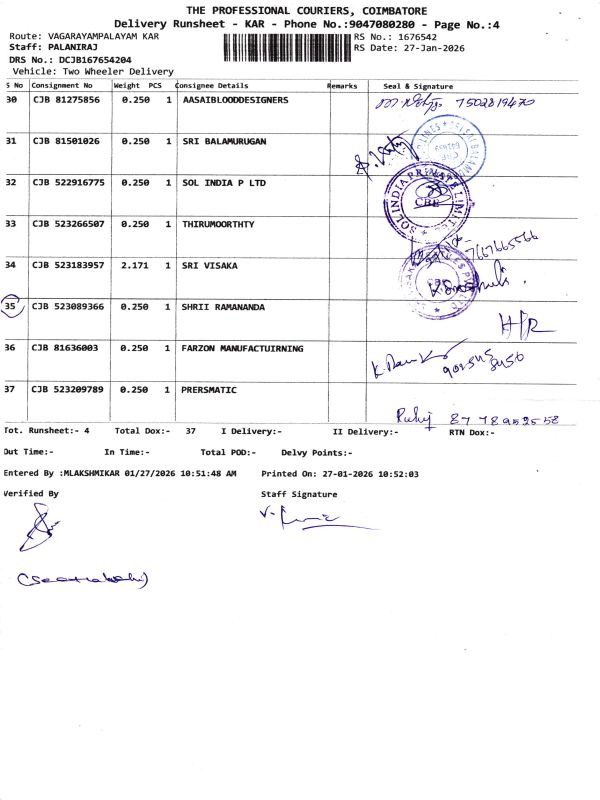 THE PROFESSIONAL COURIERS, COIMBATORE
Delivery Runsheet - KAR - Phone No.:9047080280 - Page No.:4
Route: VAGARAYAMPALAYAM KAR RS No.: 1676542
Staff: PALANIRAJ RS Date: 27-Jan-2026
DRS No.: DCJB167654204
Vehicle: Two Wheeler Delivery
S No Consignment No Weight PCS Consignee Details Remarks Seal & Signature
30 CJB 81275856 0.250 1 AASAIBLOODDESIGNERS 7502819470
31 CJB 81501026 0.250 1 SRI BALAMURUGAN
32 CJB 522916775 0.250 1 SOL INDIA P LTD SOL INDIA PRIVATE LIMITED CBE
33 CJB 523266507 0.250 1 THIRUMOORTHTY 7667665566
34 CJB 523183957 2.171 1 SRI VISAKA
35 CJB 523089366 0.250 1 SHRII RAMANANDA
36 CJB 81636003 0.250 1 FARZON MANUFACTUIRNING
37 CJB 523209789 0.250 1 PRERSMATIC
Tot. Runsheet:- 4 Total Dox:- 37 I Delivery:- II Delivery:- RTN Dox:-
Out Time:- In Time:- Total POD:- Delvy Points:-
Entered By :MLAKSHMIKAR 01/27/2026 10:51:48 AM Printed On: 27-01-2026 10:52:03
Verified By Staff Signature